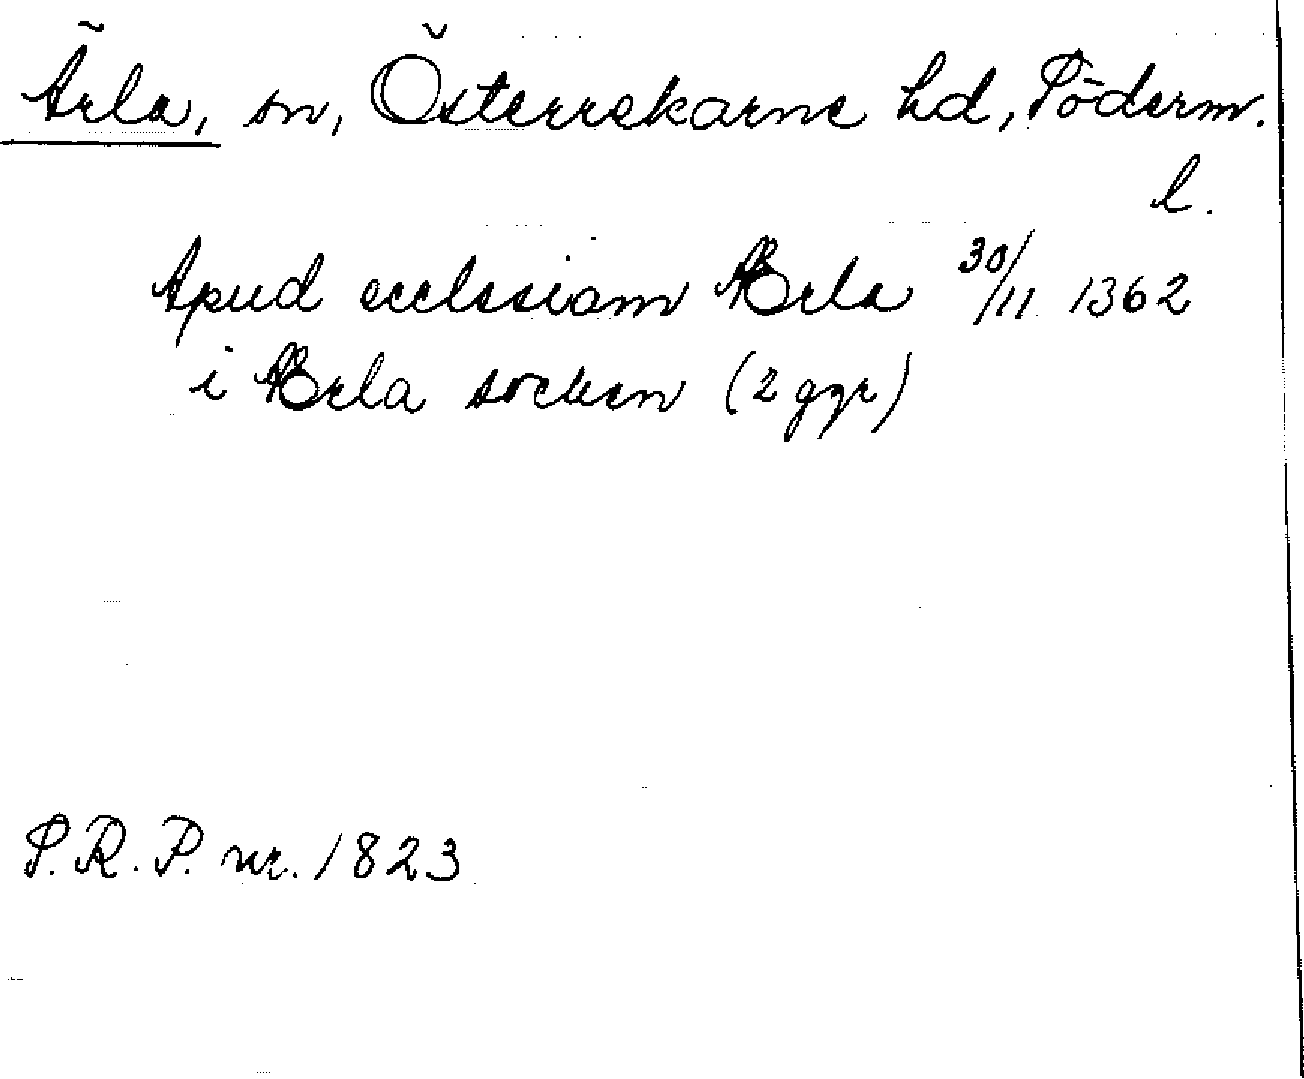 Ärla, sn, Österrekarne hd, Söderm.
l.
Apud ecclesiam Ærla 30/11 1362
i Ærla socken (2 ggr)
S.R.P. nr. 1823